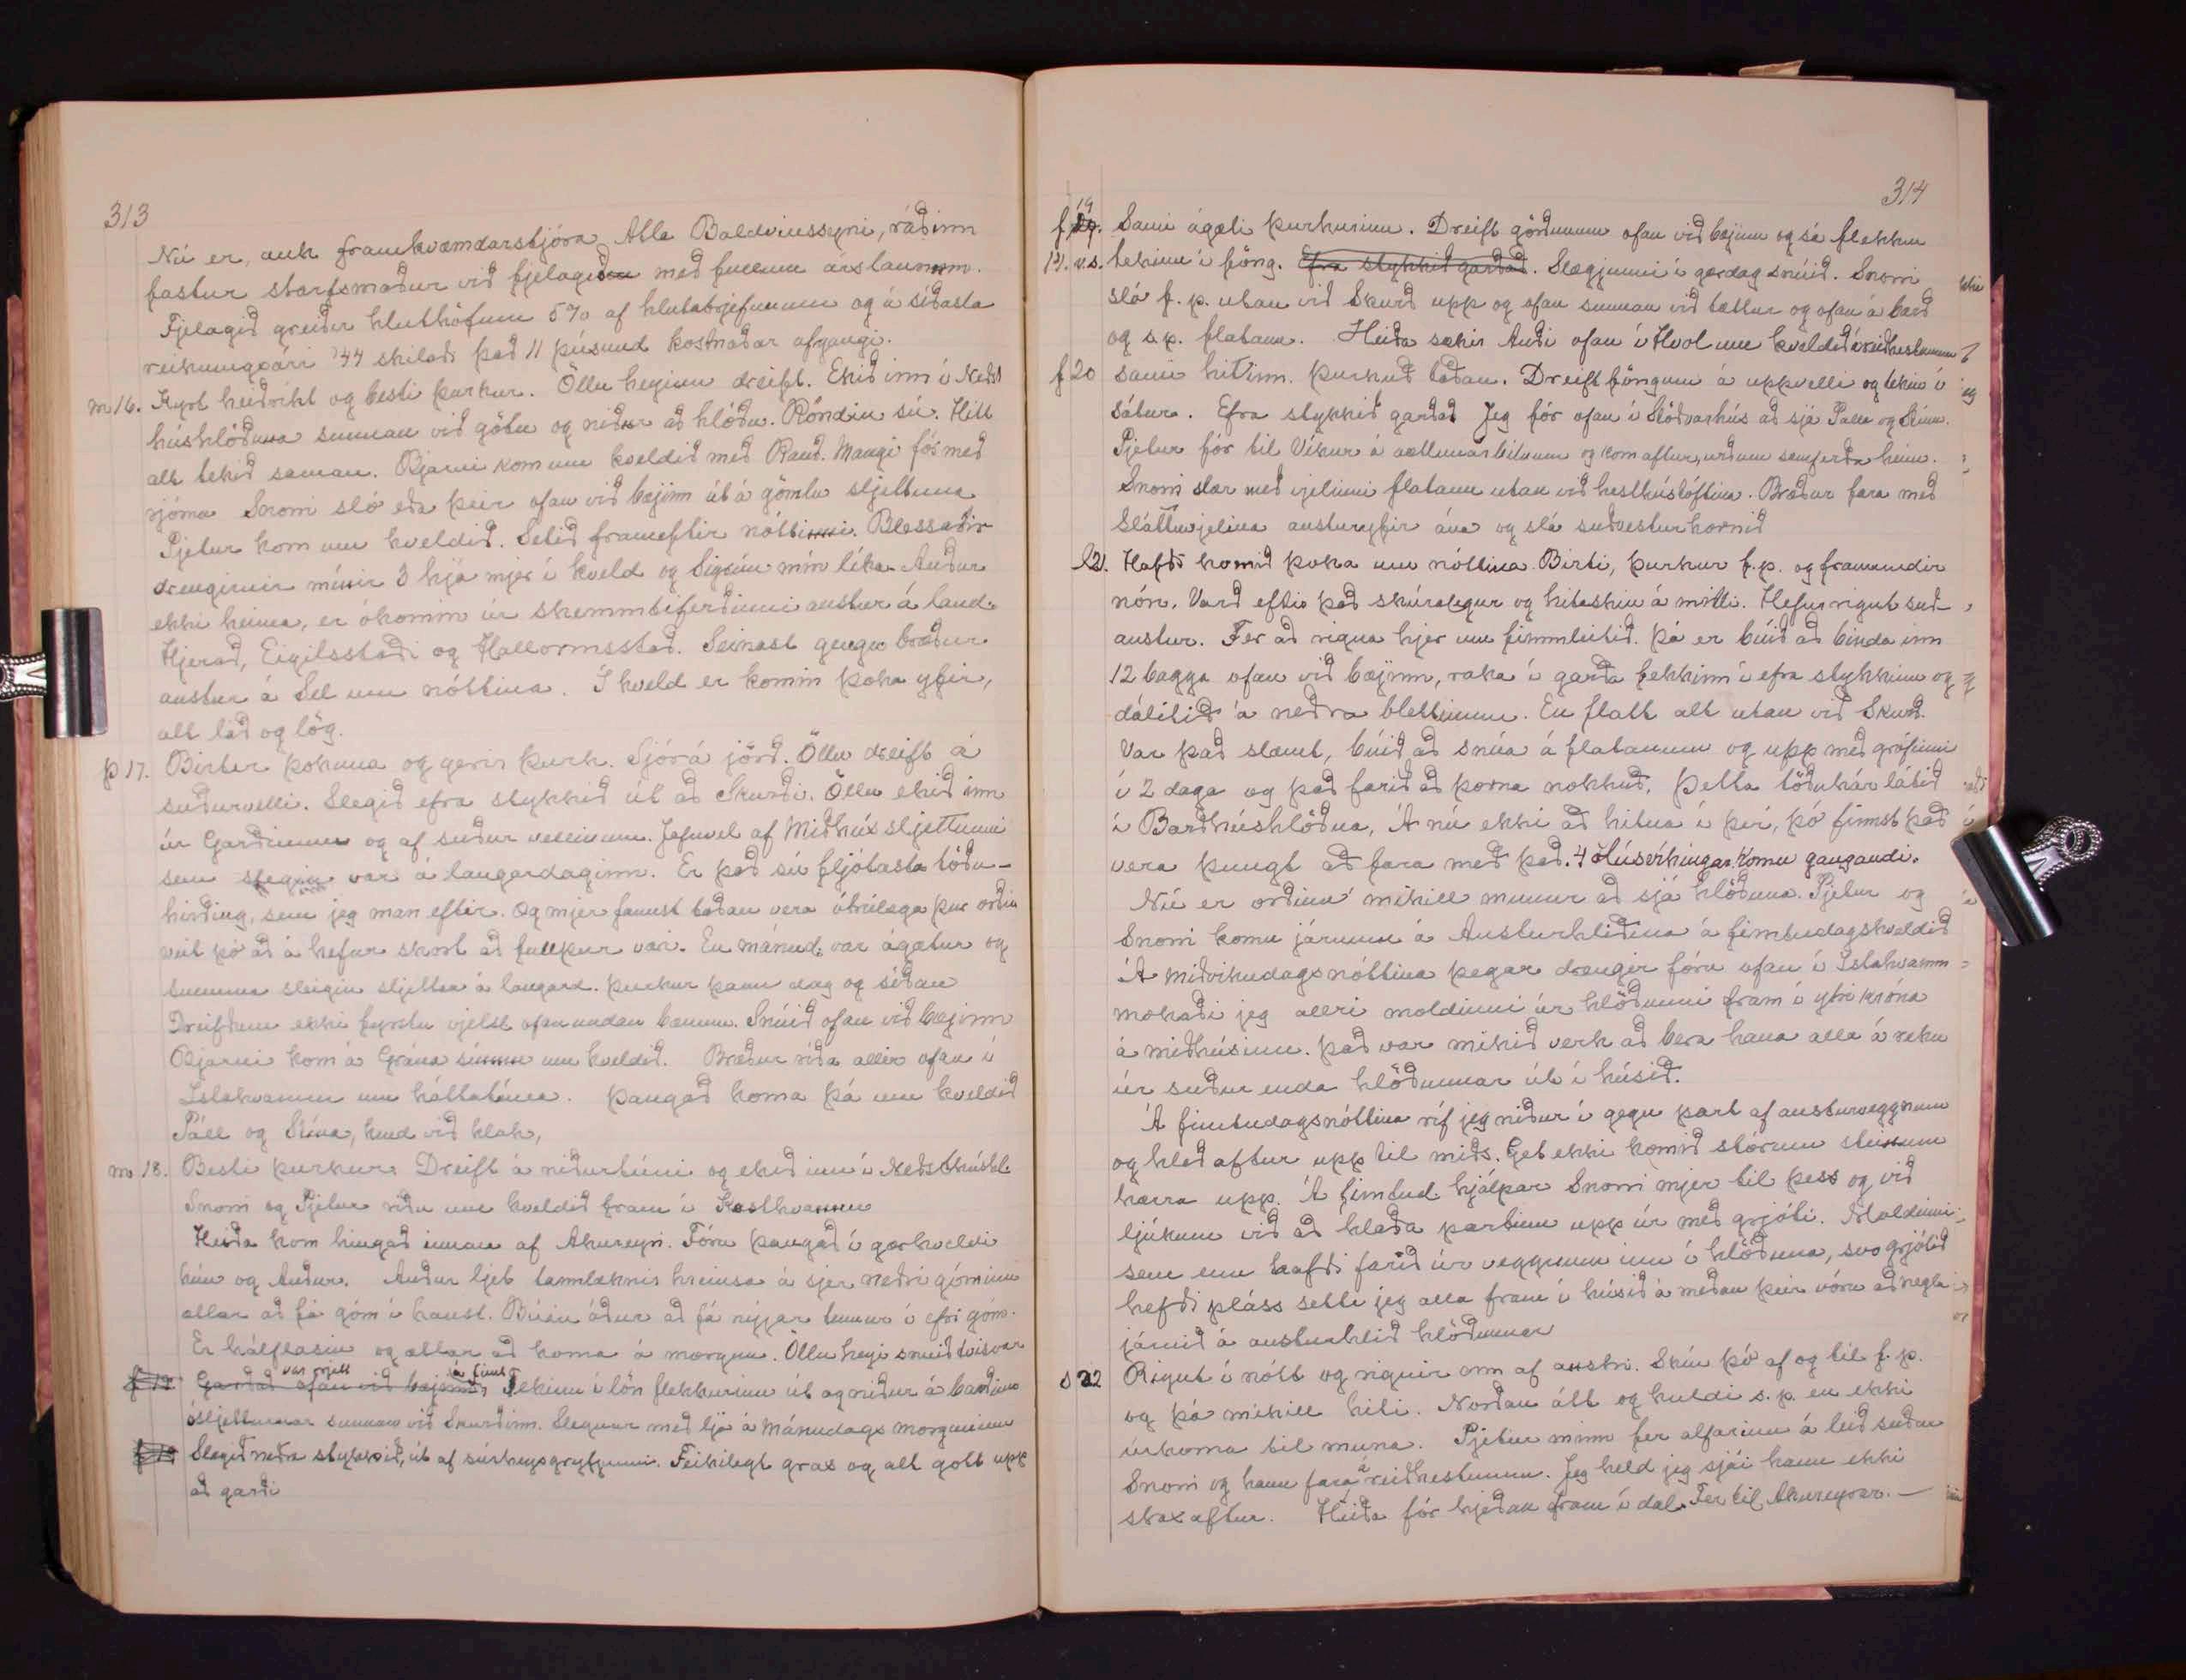 313
Nú er, auk framkvæmdarstjóra Alla Baldvinssyni, ráðinn
fastur starfsmaður við fjelagið með fullum árslaunum.
Fjelagið greiðir hluthöfum 5% af hlutabrjefunum og á síðasta
reikningsári '44 skilaði það 11 þúsund kostnaðar afgangi.
m 16. Kyrt heiðríkt og besti þurkur. Öllu heyinu dreift. Ekið inn í Neðst
húshlöðuna sunnan við götu og niður að hlöðu. Röndin sú. Hitt
alt tekið saman. Bjarni kom um kveldið með Rauð. Mangi fór með
rjóma Snorri sló eða þeir ofan við bæjinn út á gömlu sljettuna
Pjetur kom um kveldið. Setið frameftir nóttinni. Blessaðir
drengirnir mínir 3 hjá mjer í kveld og Sigrún mín líka. Auður
ekki heima, er ókomin úr skemmtiferðinni austur á land.
Hjerað, Eigilsstaði og Hallormsstað. Seinast gengu bræður
austur á Sel um nóttina. Í kveld er komin þoka yfir,
alt láð og lög.
þ 17. Birtir þokuna og gerir þurk. Sjórá jörð. Öllu dreift á
suðurvelli. Slegið efra stykkið út að Skurði. Öllu ekið inn
úr Garðinum og af suður vellinum. Jafnvel af Miðhúsasljettunni
sem slegin var á laugardaginn. Er það sú fljótasta töðu-
hirðing, sem jeg man eftir. Og mjer fannst taðan vera ótrúlega þur orðin
veit þó að á hefur skort að fullþur væri. En mánud. var ágætur og
summa sleigin sljettan á laugard. þurkur þann dag og síðan
Dreifðum ekki fyrstu vjelsl. ofanundan bænum. Snúið ofan við bæjinn
Bjarni kom á Grána sínum um kveldið. Bræður ríða allir ofan í
Íslahvamm um háttatíma. Þangað koma þá um kveldið
Páll og Stína, kend við klak,
m 18. Besti þurkur. Dreift á niðurtúni og ekið inn í Neðsthúshl.
Snorri og Pjetur riðu um kveldið fram í Kasthvamm
Heiða kom hingað innan af Akureyri. Fóru þangað í gærkveldi
hún og Auður. Auður ljet tannlæknir hreinsa á sjer neðri góminn
ætlar að fá góm í haust. Búin áður að fá nýjar tennur í efri góm.
Er hálflasin og ætlar að koma á morgun. Öllu heyi snúið tvisvar
f 19 Garðað ofan við bæjinn, Tekinn í lön flekkurinn út og niður á barðinu
ósljettunnar sunnan við Skurðinn. Slegnar með ljá á Mánudags morguninn
Slegið neðra stykkið, út af súrheysgryfjunni. Feikilegt gras og alt gott upp
að garði
314
f 19. Sami ágæti þurkurinn. Dreift görðunum ofan við bæjinn og sá flekkur
tekinn í föng. Efra stykkið garðað. Slægjunni í gærdag snúið. Snorri
sló f. p. utan við Skurð upp og ofan sunnan við tættur og ofan á barð
og s.p. flatann. Heiða sækir Auði ofan í Hvol um kveldið á reiðhestunum
f 20 sami hitinn. Þurkuð taðan. Dreift föngum á uppvelli og tekin í
sátur. Efra stykkið garðað Jeg fór ofan í Stöðvarhús að sjá Palla og Stínu.
Pjetur fór til Víkur á ætlunarbílnum og kom aftur, urðum samferða heim.
Snorri slær með vjelinni flatann utan við hesthústóftina. Bræður fara með
Sláttuvjelina austuryfir ána og slá suðvesturhornið
l 21. Hafði komið þoka um nóttina. Birti, þurkur f.p. og frammundir
nón. Varð eftir það skúralegur og hitaskin á milli. Hefur rignt suð-
austur. Fer að rigna hjer um fimmleitið. Þá er búið að binda inn
12 bagga ofan við bæjinn, raka í garða fekkinn í efra stykkinu og
dálitið á neðra blettinum. En flatt alt utan við Skurð.
Var það slæmt, búið að snúa á flatanum og upp með gröfinni
í 2 daga og það farið að þorna nokkuð. Þetta töðuhár látið
í Barðhúshlöðna, Á nú ekki að hitna í því, þó finnst það
vera þungt að fara með það. 4 Húsvíkingar komu gangandi.
Nú er orðinn mikill munur að sjá hlöðuna. Pjetur og
Snorri komu járnum á Austurhliðina á fimtudagskveldið
Á miðvikudagsnóttina þegar drengir fóru ofan í Íslahvamm
mokaði jeg allri moldinni úr hlöðunni fram í ytri króna
á miðhúsinu. Það var mikið verk að bera hana alla á reku
úr suður enda hlöðunnar út í húsið.
Á fimtudagsnóttina ríf jeg niður í gegn part af austurveggnum
og hleð aftur upp til miðs. Get ekki komið stórum steinum
hærra upp. Á fimtud. hjálpar Snorri mjer til þess og við
ljúkum við að hlaða partinn upp úr með grjóti. Moldinni
sem enn hafði farið úr veggnum inn í hlöðuna, svo grjótið
hefði pláss setti jeg alla fram í húsið á meðan þeir vóru að negla
járnið á austurhlið hlöðunnar
s 22 Rignt í nótt og rignir enn af austri. Skín þó af og til f. p.
og þó mikill hiti. Norðan átt og kuldi s. p. en ekki
úrkoma til muna. Pjetur minn fer alfarinn á leið suður
Snorri og hann fara á reiðhestunum. Jeg held jeg sjái hann ekki
strax aftur. Heiða fór hjeðan fram í dal. Fer til Akureyrar. —